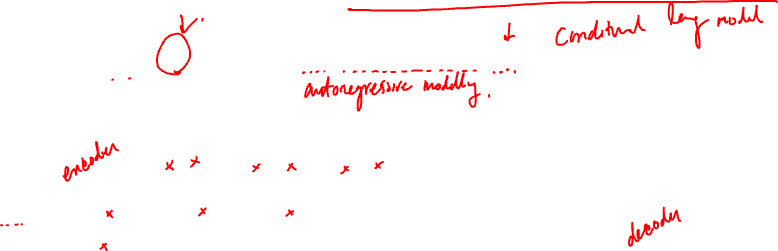 Conditional lang model
autoregressive modelly.
encoder
decoder